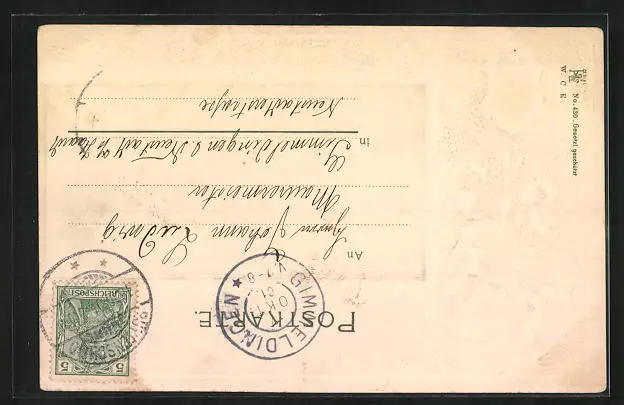 POSTKARTE.
GIMMELDINGEN
31
OKT
V.7-8
REICHSPOST
5 5
An
Herrn Johann Ludwig
Maurermeister
in Gimmeldingen b Neustadt a/d Haardt
Neustadterstraße
No. 439. Gesetzl. geschützt
W. C. E.